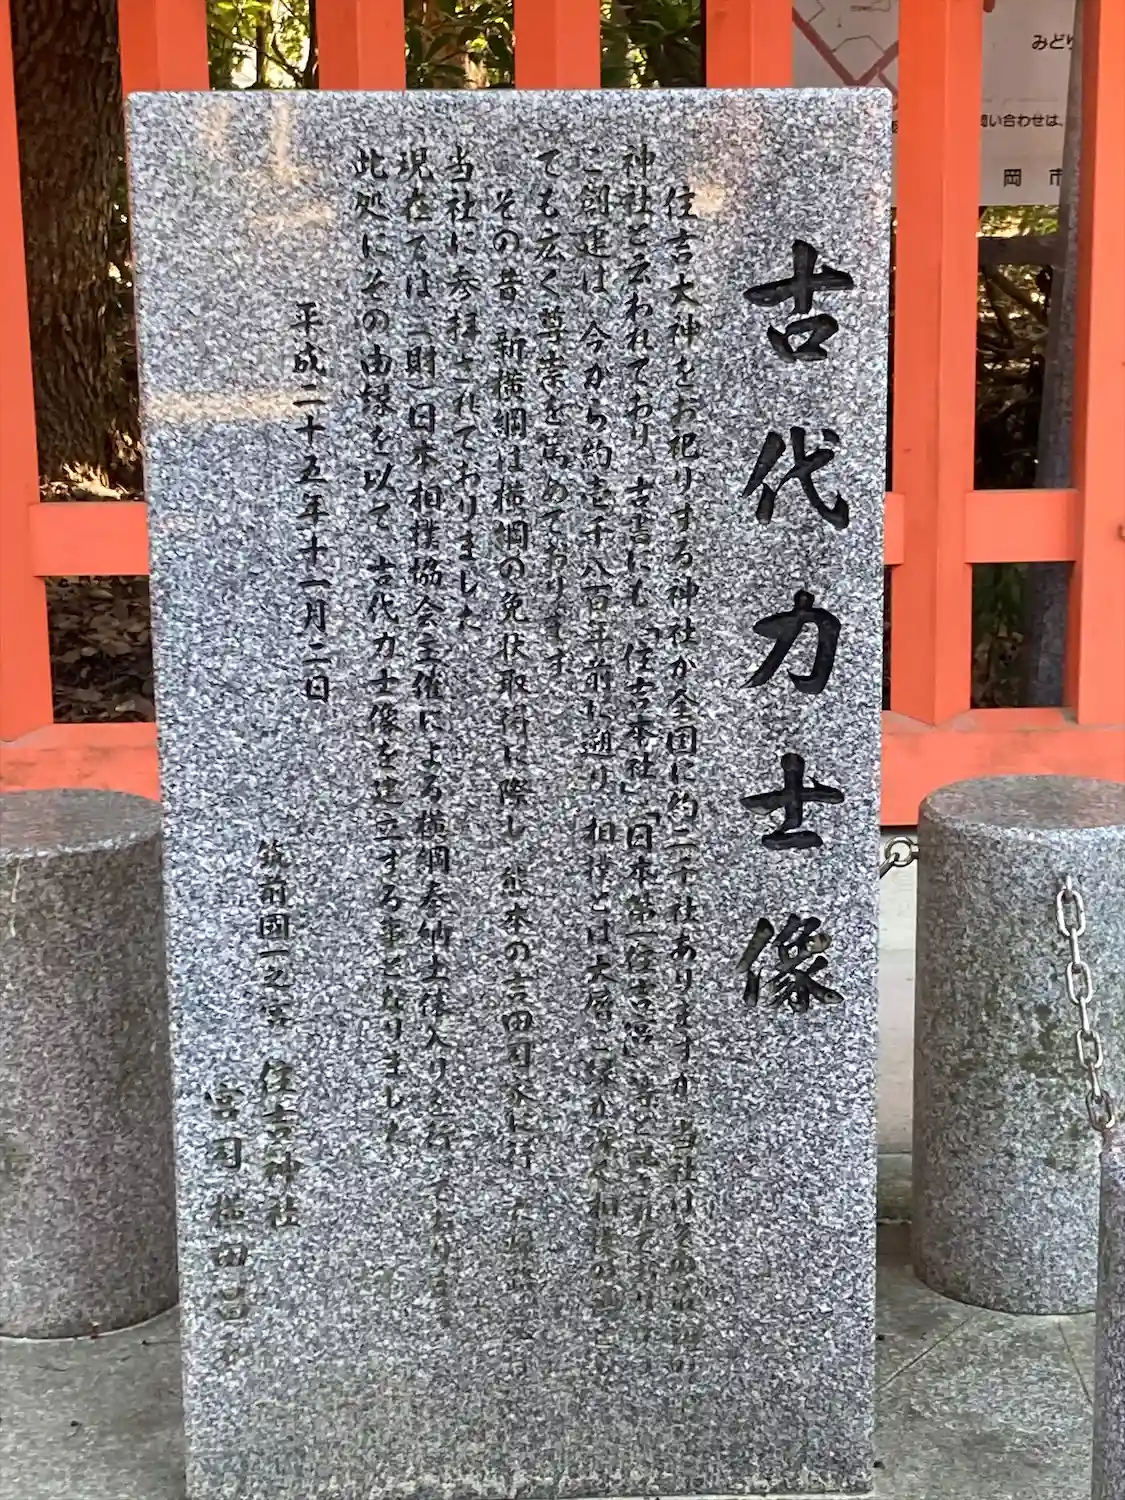 古代力士像
住吉大神をお祀りする神社が全国に約二千社ありますが、当社は
神社と云われており、古書にも「住吉本社」「日本第一住吉宮」等と記されており
ご創建は、今から約壱千八百年前に遡り、相撲とは大層
ても広く尊崇を篤めております。
その昔、新横綱は横綱の免状取得に際し、熊本の吉田司家に行
当社に参拝されておりました
現在では(財)日本相撲協会主催による横綱奉納土俵入りを行って
此処にその由縁を以て、古代力士像を建立する事となりました
平成二十五年十一月二日
筑前國一之宮 住吉神社
宮司 横田
みどり
問い合わせは、
岡 市